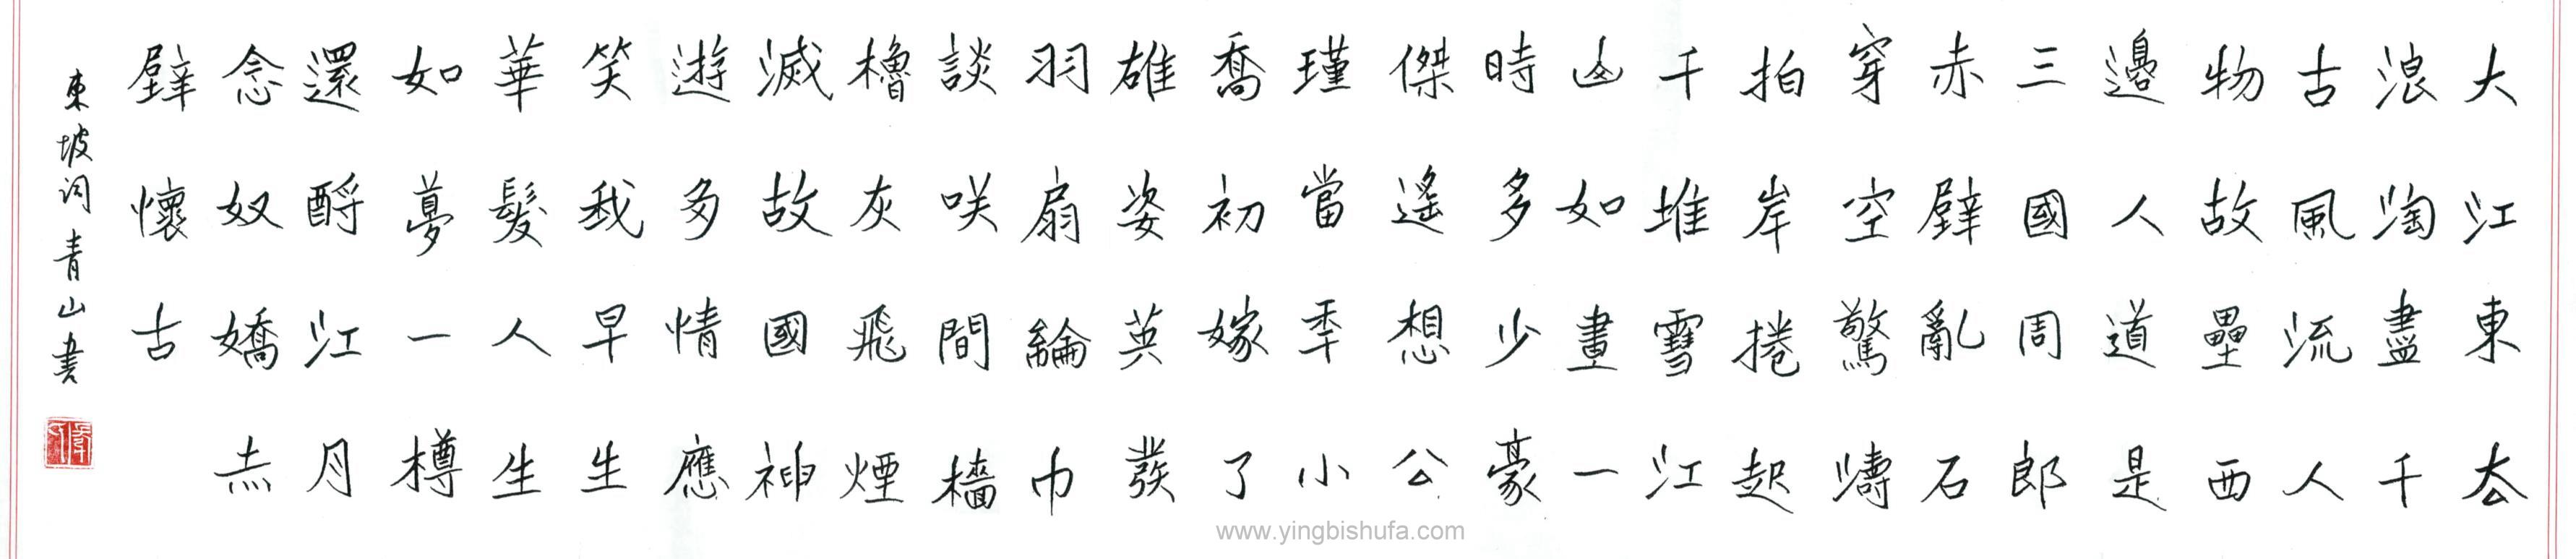 大江東厺
浪淘盡千
古風流人
物故壘西
邊人道是
三國周郎
赤壁亂石
穿空驚濤
拍岸捲起
千堆雪江
山如畫一
時多少豪
傑遙想公
瑾當年小
喬初嫁了
雄姿英發
羽扇綸巾
談咲間檣
櫓灰飛煙
滅故國神
遊多情應
笑我早生
華髮人生
如夢一樽
還酹江月
念奴嬌赤
壁懷古
東坡詞青山書
www.yingbishufa.com